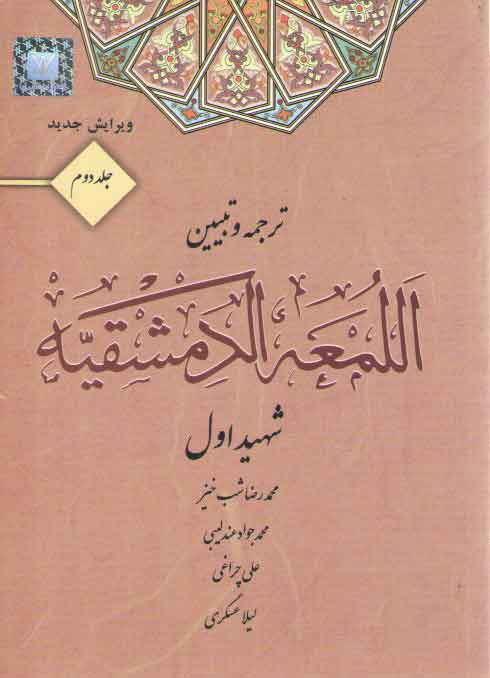 ویرایش جدید
جلد دوم
ترجمه و تبیین
اَللُّمعَهُ الدِمَشقیَّه
شهید اول
محمد رضا شب خیز
محمد جواد عندلیبی
علی چراغی
لیلا عسگری